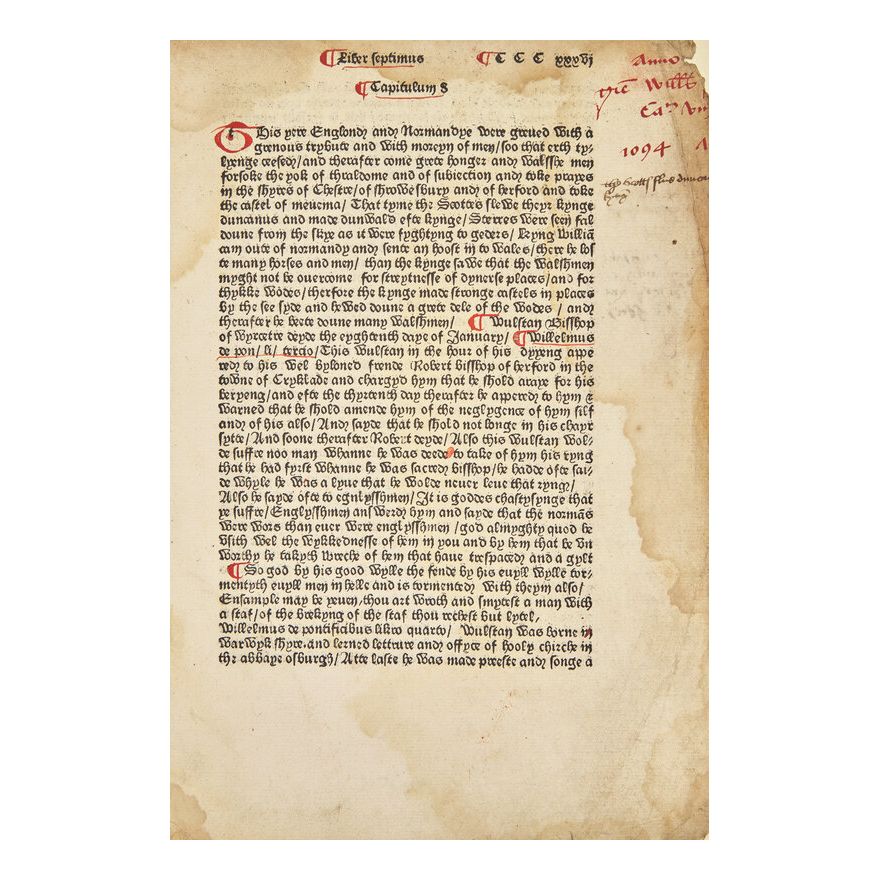 Liber septimus C C C xxxvi
Capitulum 8
This yere Englond and Normandye were greued with a
greuous trybute and with moreyn of men/ soo that erth ty-
lyenge cesed/ and therafter come grete honger and Walsshe men
forsoke the yok of thraldome and of subiection and toke prayes
in the shyres of Chestre/ of shrowesbury and of herford and toke
the castel of meuema/ That tyme the Scottes slewe theyr kynge
duncanus and made dunwald efte kynge/ Sterres were seen fal
doune from the skye as it were fyghtyng to geders/ Kyng Willia͞
cam oute of normandy and sente an hoost in to Wales/ there he los
te many horses and men/ than the kynge sawe that the Walshmen
myght not be ouercome for streytnesse of dyuerse places/ and for
thykke Wodes/ therfore the kynge made stronge castels in places
by the see syde and hewed doune a grete dele of the Wodes/ and
therafter he bete doune many Walshmen/ Wulstan Bisshop
of Wyrcetre deyde the eyghtenth daye of January/ Wilhelmus
de pon/ li/ tercio/ This Wulstan in the hour of his dyyeng appe
red to his wel byloued frende Robert bisshop of herford in the
towne of Cryklade and chargyd hym that he shold araye for his
beryeng/ and efte the thyrtenth day therafter he appered to hym &
warned that he shold amende hym of the neglygence of hym silf
and of his also/ And sayde that he shold not longe in his chayr
sytte/ And soone therafter Robert deyde/ Also this Wulstan wol-
de suffre noo man whanne he was deede to take of hym his ryng
that he had fyrst whanne he was sacred bisshop/ he hadde ofte sai-
de whyle he was a lyue that he wolde neuer leue that ryng/
Also he sayde ofte to englysshmen/ It is goddes chastysynge that
ye suffre/ Englysshmen answerd hym and sayde that the norma͞s
were wors than euer were englysshmen/ god almyghty quod he
vsith wel the wykkednesse of hem in you and by hem that be vn
worthy he takyth wreche of hem that haue trespaced and a gylt
So god by his good wylle the fende by his euyll wylle tor-
mentyth euyll men in helle and is tormented with theym also/
Ensample may be yeuen, thou art wroth and smytest a man with
a staf/ of the brekyng of the staf thou reckest but lytel,
Wilhelmus de pontificibus libro quarto/ Wulstan was borne in
warwyk shyre. and lerned lettrure and offyce of hooly chirche in
the abbaye of burgh/ Atte laste he was made preeste and songe a
Anno
1094